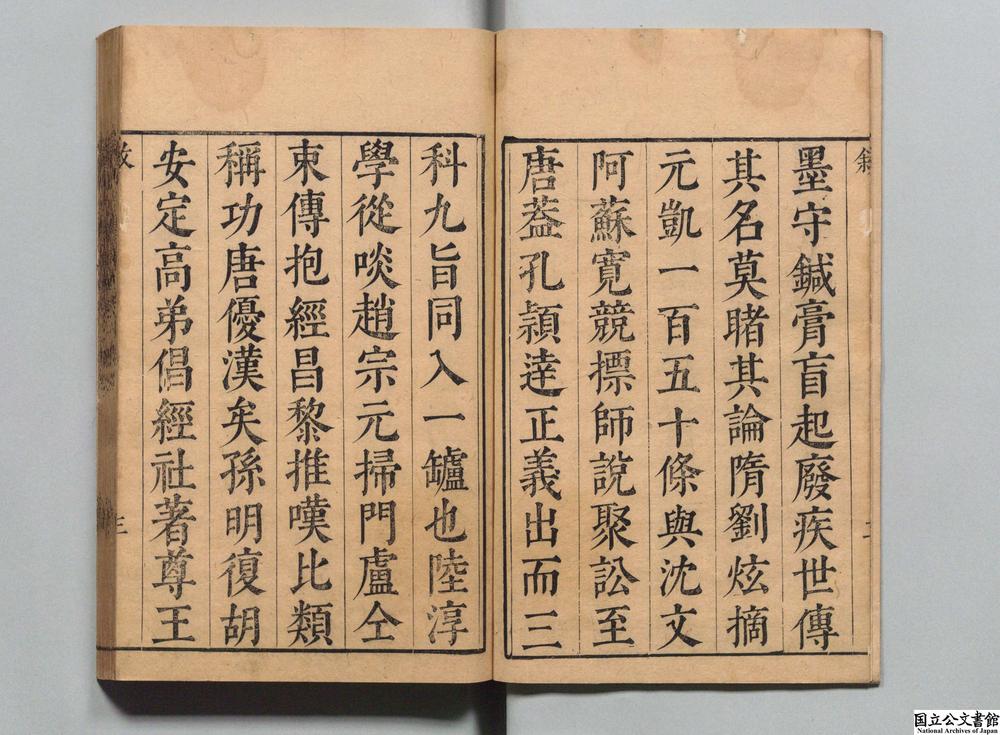 墨守鍼膏盲起廢疾世傳
其名莫睹其論隋劉炫摘
元凱一百五十條與沈文
阿蘇寬競摽師說聚訟至
唐葢孔頴逹正義出而三
科九旨同入一罏也陸淳
學從啖趙宗元掃門盧仝
束傳抱經昌黎推嘆比類
稱功唐優漢矣孫明復胡
安定高弟倡經社著尊王
三
国立公文書館
National Archives of Japan